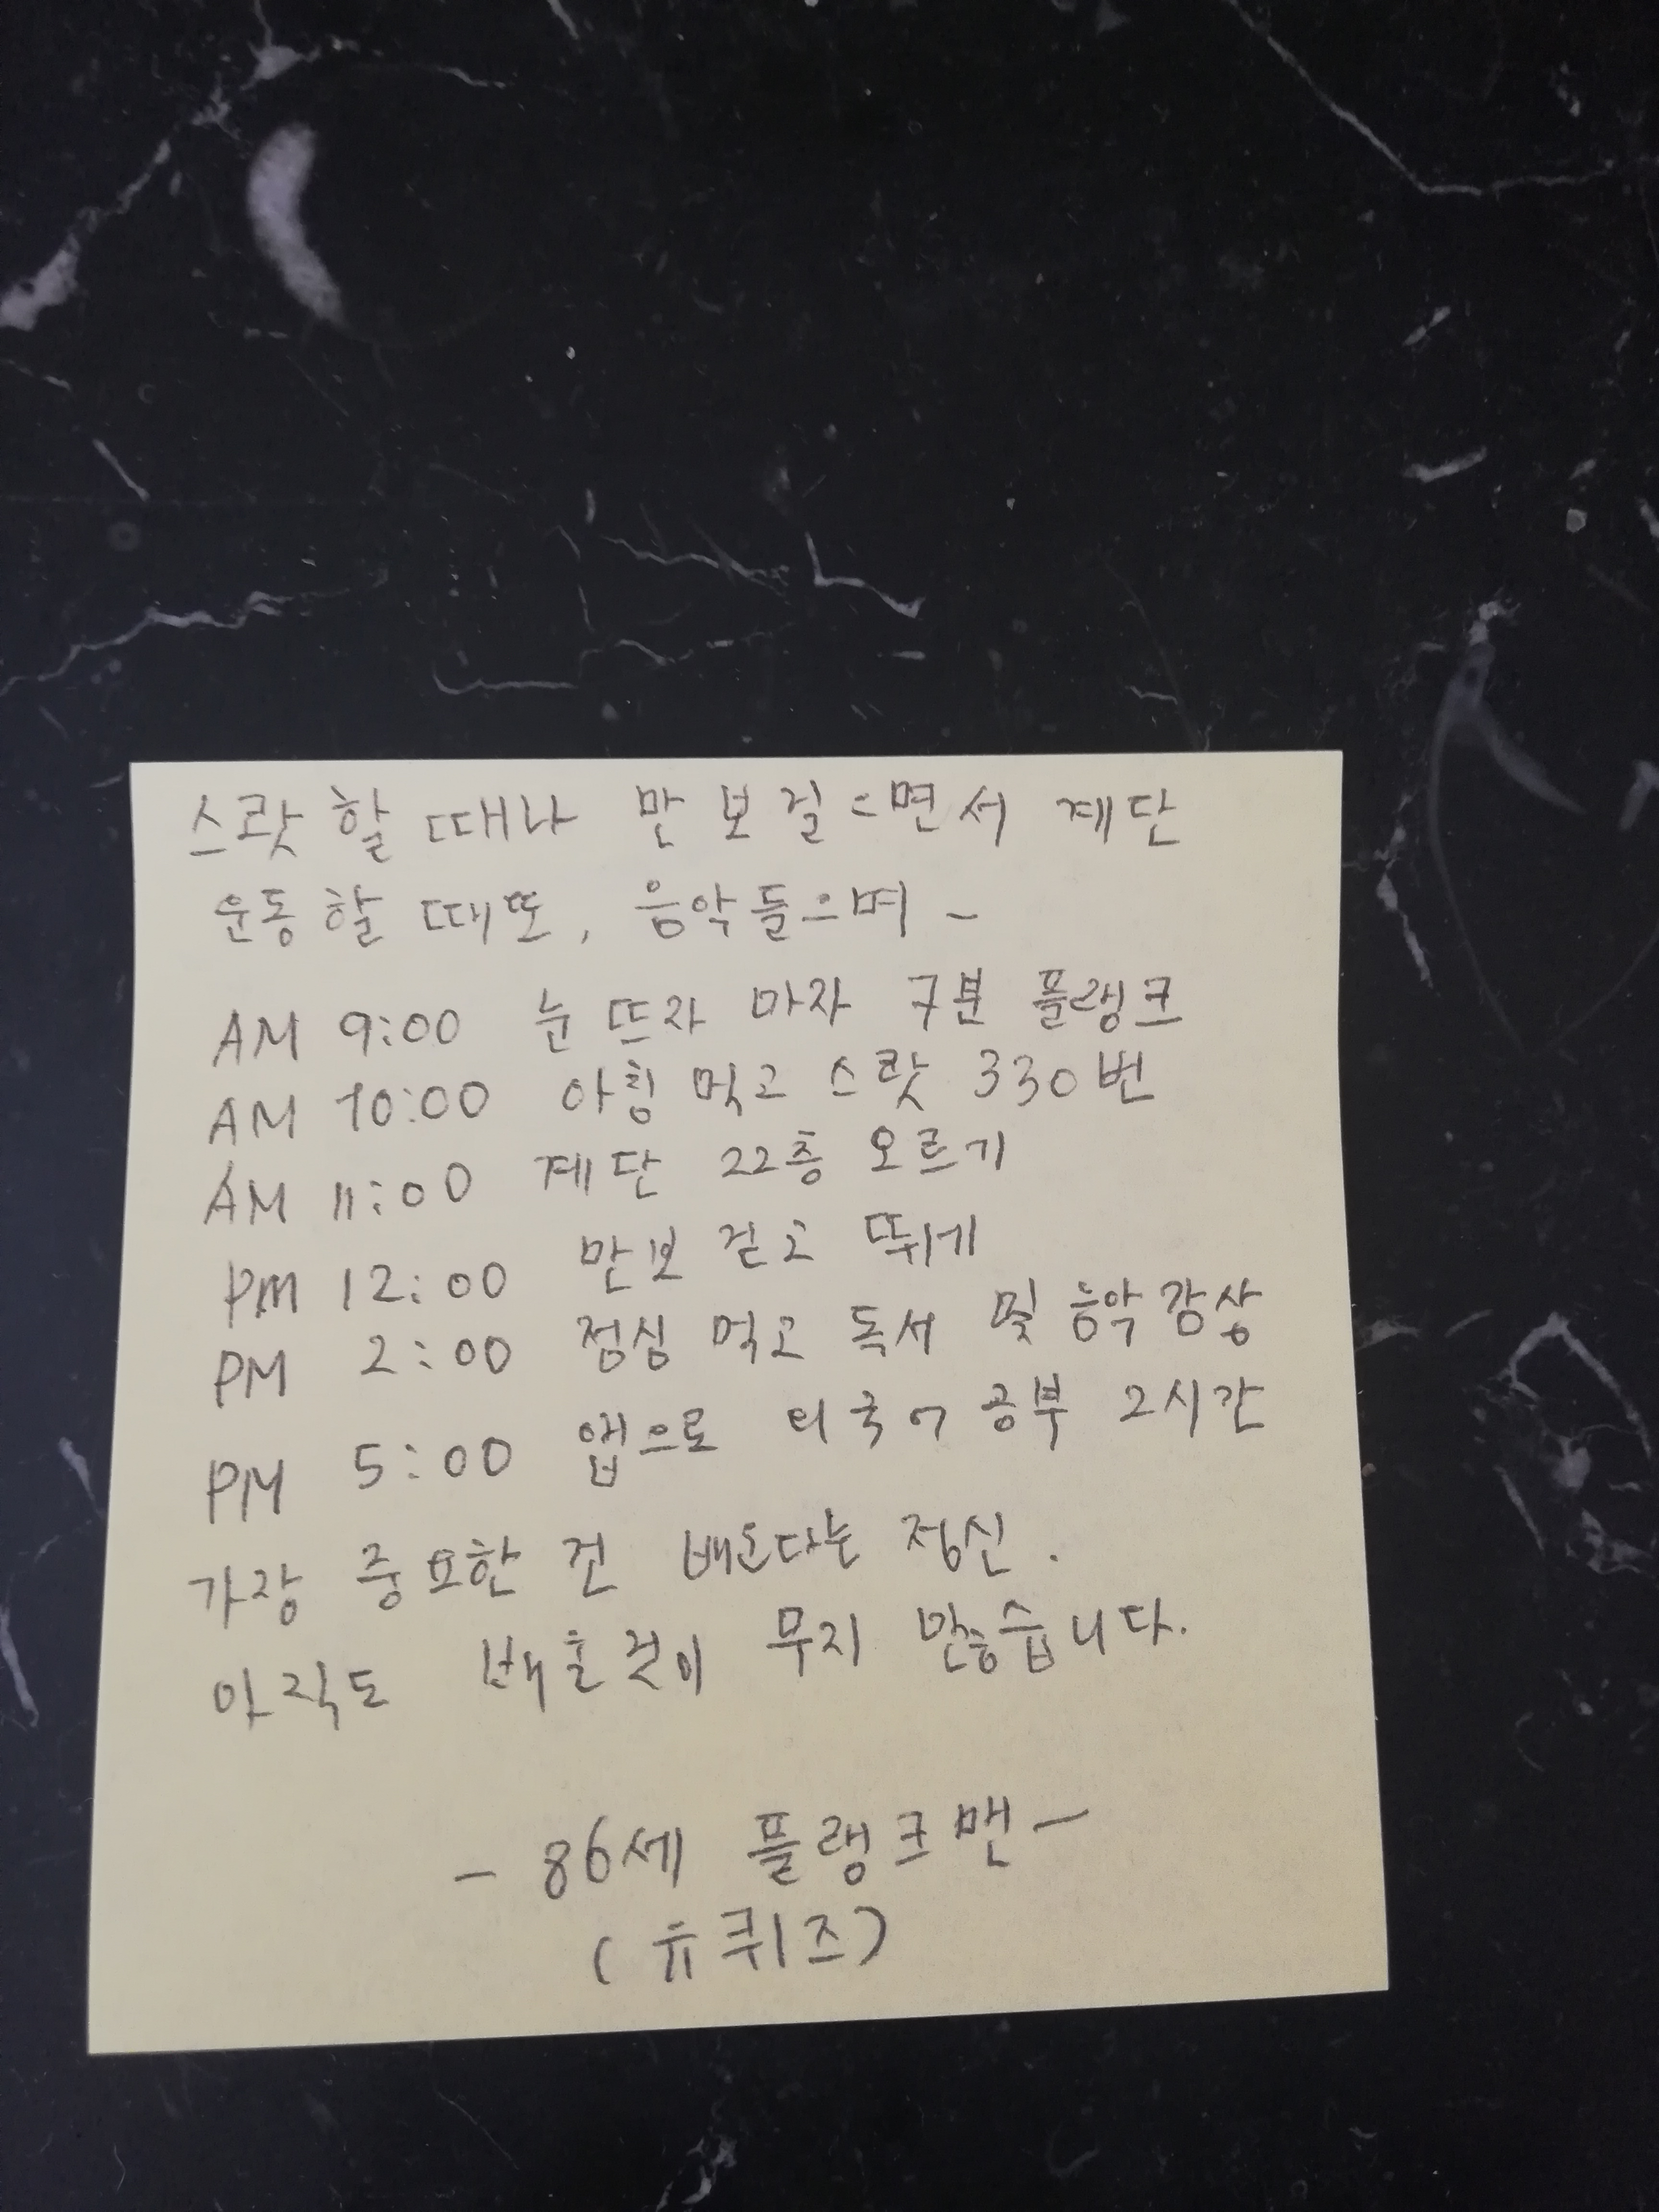 스쾃 할 때나 만보걸으면서 계단
운동할 때또, 음악들으며 -
AM 9:00 눈 뜨자 마자 7분 플랭크
AM 10:00 아침 먹고 스쾃 330번
AM 11:00 계단 22층 오르기
PM 12:00 만보 걷고 뛰기
PM 2:00 점심 먹고 독서 및 음악감상
PM 5:00 앱으로 외국어 공부 2시간
가장 중요한 건 배운다는 정신.
아직도 배울것이 무지 많습니다.
- 86세 플랭크맨 -
(유퀴즈)